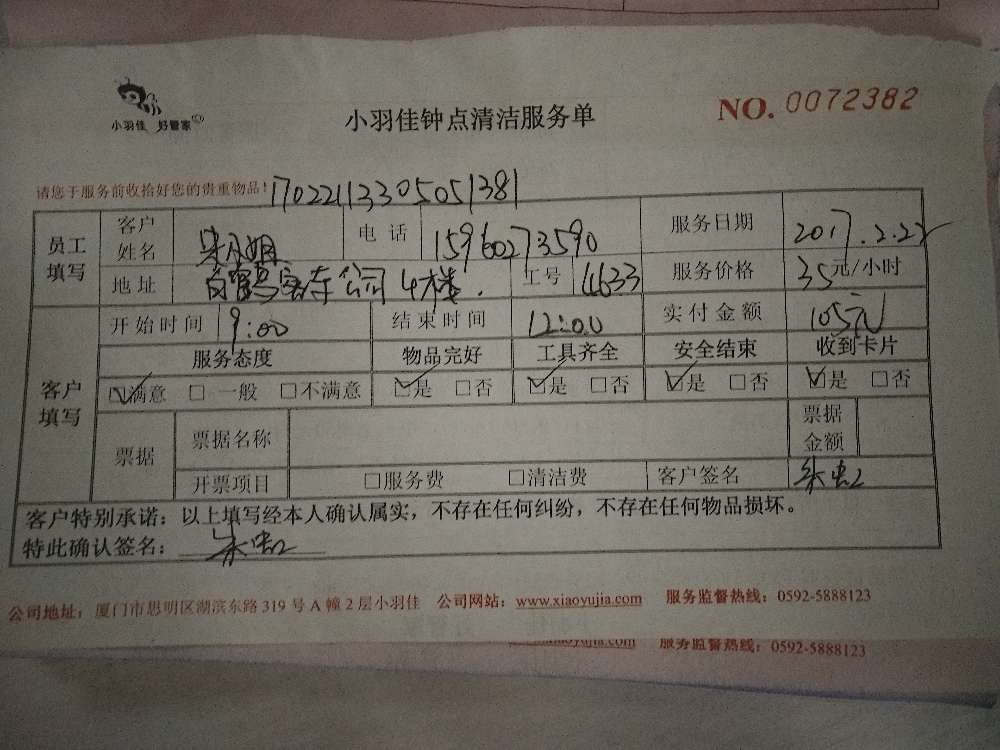 小羽佳 好管家
小羽佳钟点清洁服务单
NO. 0072382
请您于服务前收拾好您的贵重物品! 17022113305051381
员工填写 客户姓名 电话 15960273590 服务日期 2017.2.22
地址 公司4楼. 工号 4633 服务价格 35元/小时
客户填写 开始时间 9:00 结束时间 12:00 实付金额 105元
服务态度 物品完好 工具齐全 安全结束 收到卡片
☑满意 □一般 □不满意 ☑是 □否 ☑是 □否 ☑是 □否 ☑是 □否
票据 票据名称 票据金额
开票项目 □服务费 □清洁费 客户签名
客户特别承诺：以上填写经本人确认属实，不存在任何纠纷，不存在任何物品损坏。
特此确认签名：
公司地址：厦门市思明区湖滨东路319号A幢2层小羽佳 公司网站：www.xiaoyujia.com 服务监督热线：0592-5888123
www.xiaoyujia.com 服务监督热线：0592-5888123